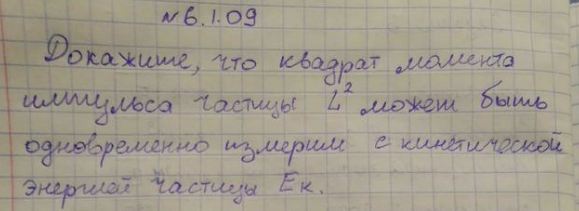 №6.1.09
Докажите, что квадрат момента
импульса частицы L² может быть
одновременно измерим с кинетической
энергией частицы Eк.